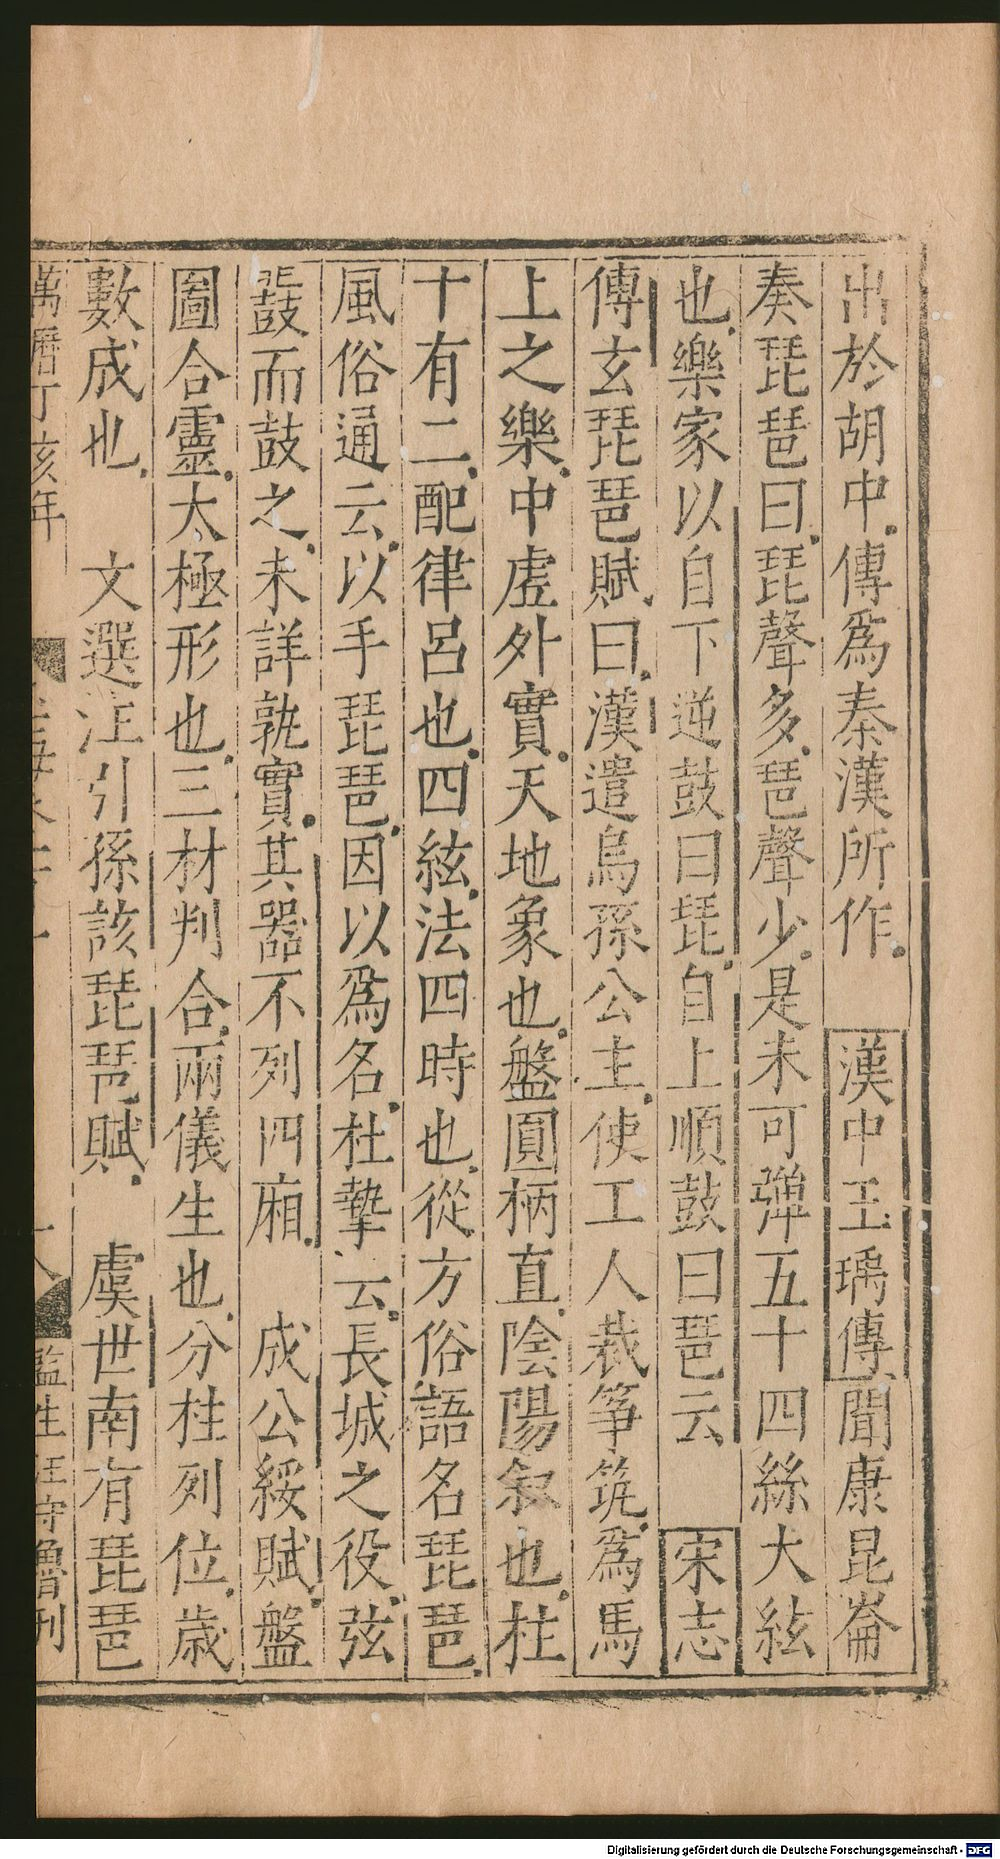 出於胡中傳爲秦漢所作　漢中王瑀傳聞康昆崙
奏琵琶曰琵聲多琶聲少是未可彈五十四絲大絃
也樂家以自下逆鼓曰琵自上順鼓曰琶云　宋志
傳玄琵琶賦曰漢遣烏孫公主使工人裁箏筑爲馬
上之樂中虛外實天地象也盤圓柄直陰陽叙也柱
十有二配律呂也四絃法四時也從方俗語名琵琶
風俗通云以手琵琶因以爲名杜摯云長城之役弦
鼗而鼓之未詳孰實其器不列四廂　成公綏賦盤
圖合靈太極形也三材判合兩儀生也分柱列位歲
數成也　文選注引孫該琵琶賦　虞世南有琵琶
萬曆丁亥年
監生汪守魯刊
Digitalisierung gefördert durch die Deutsche Forschungsgemeinschaft - DFG